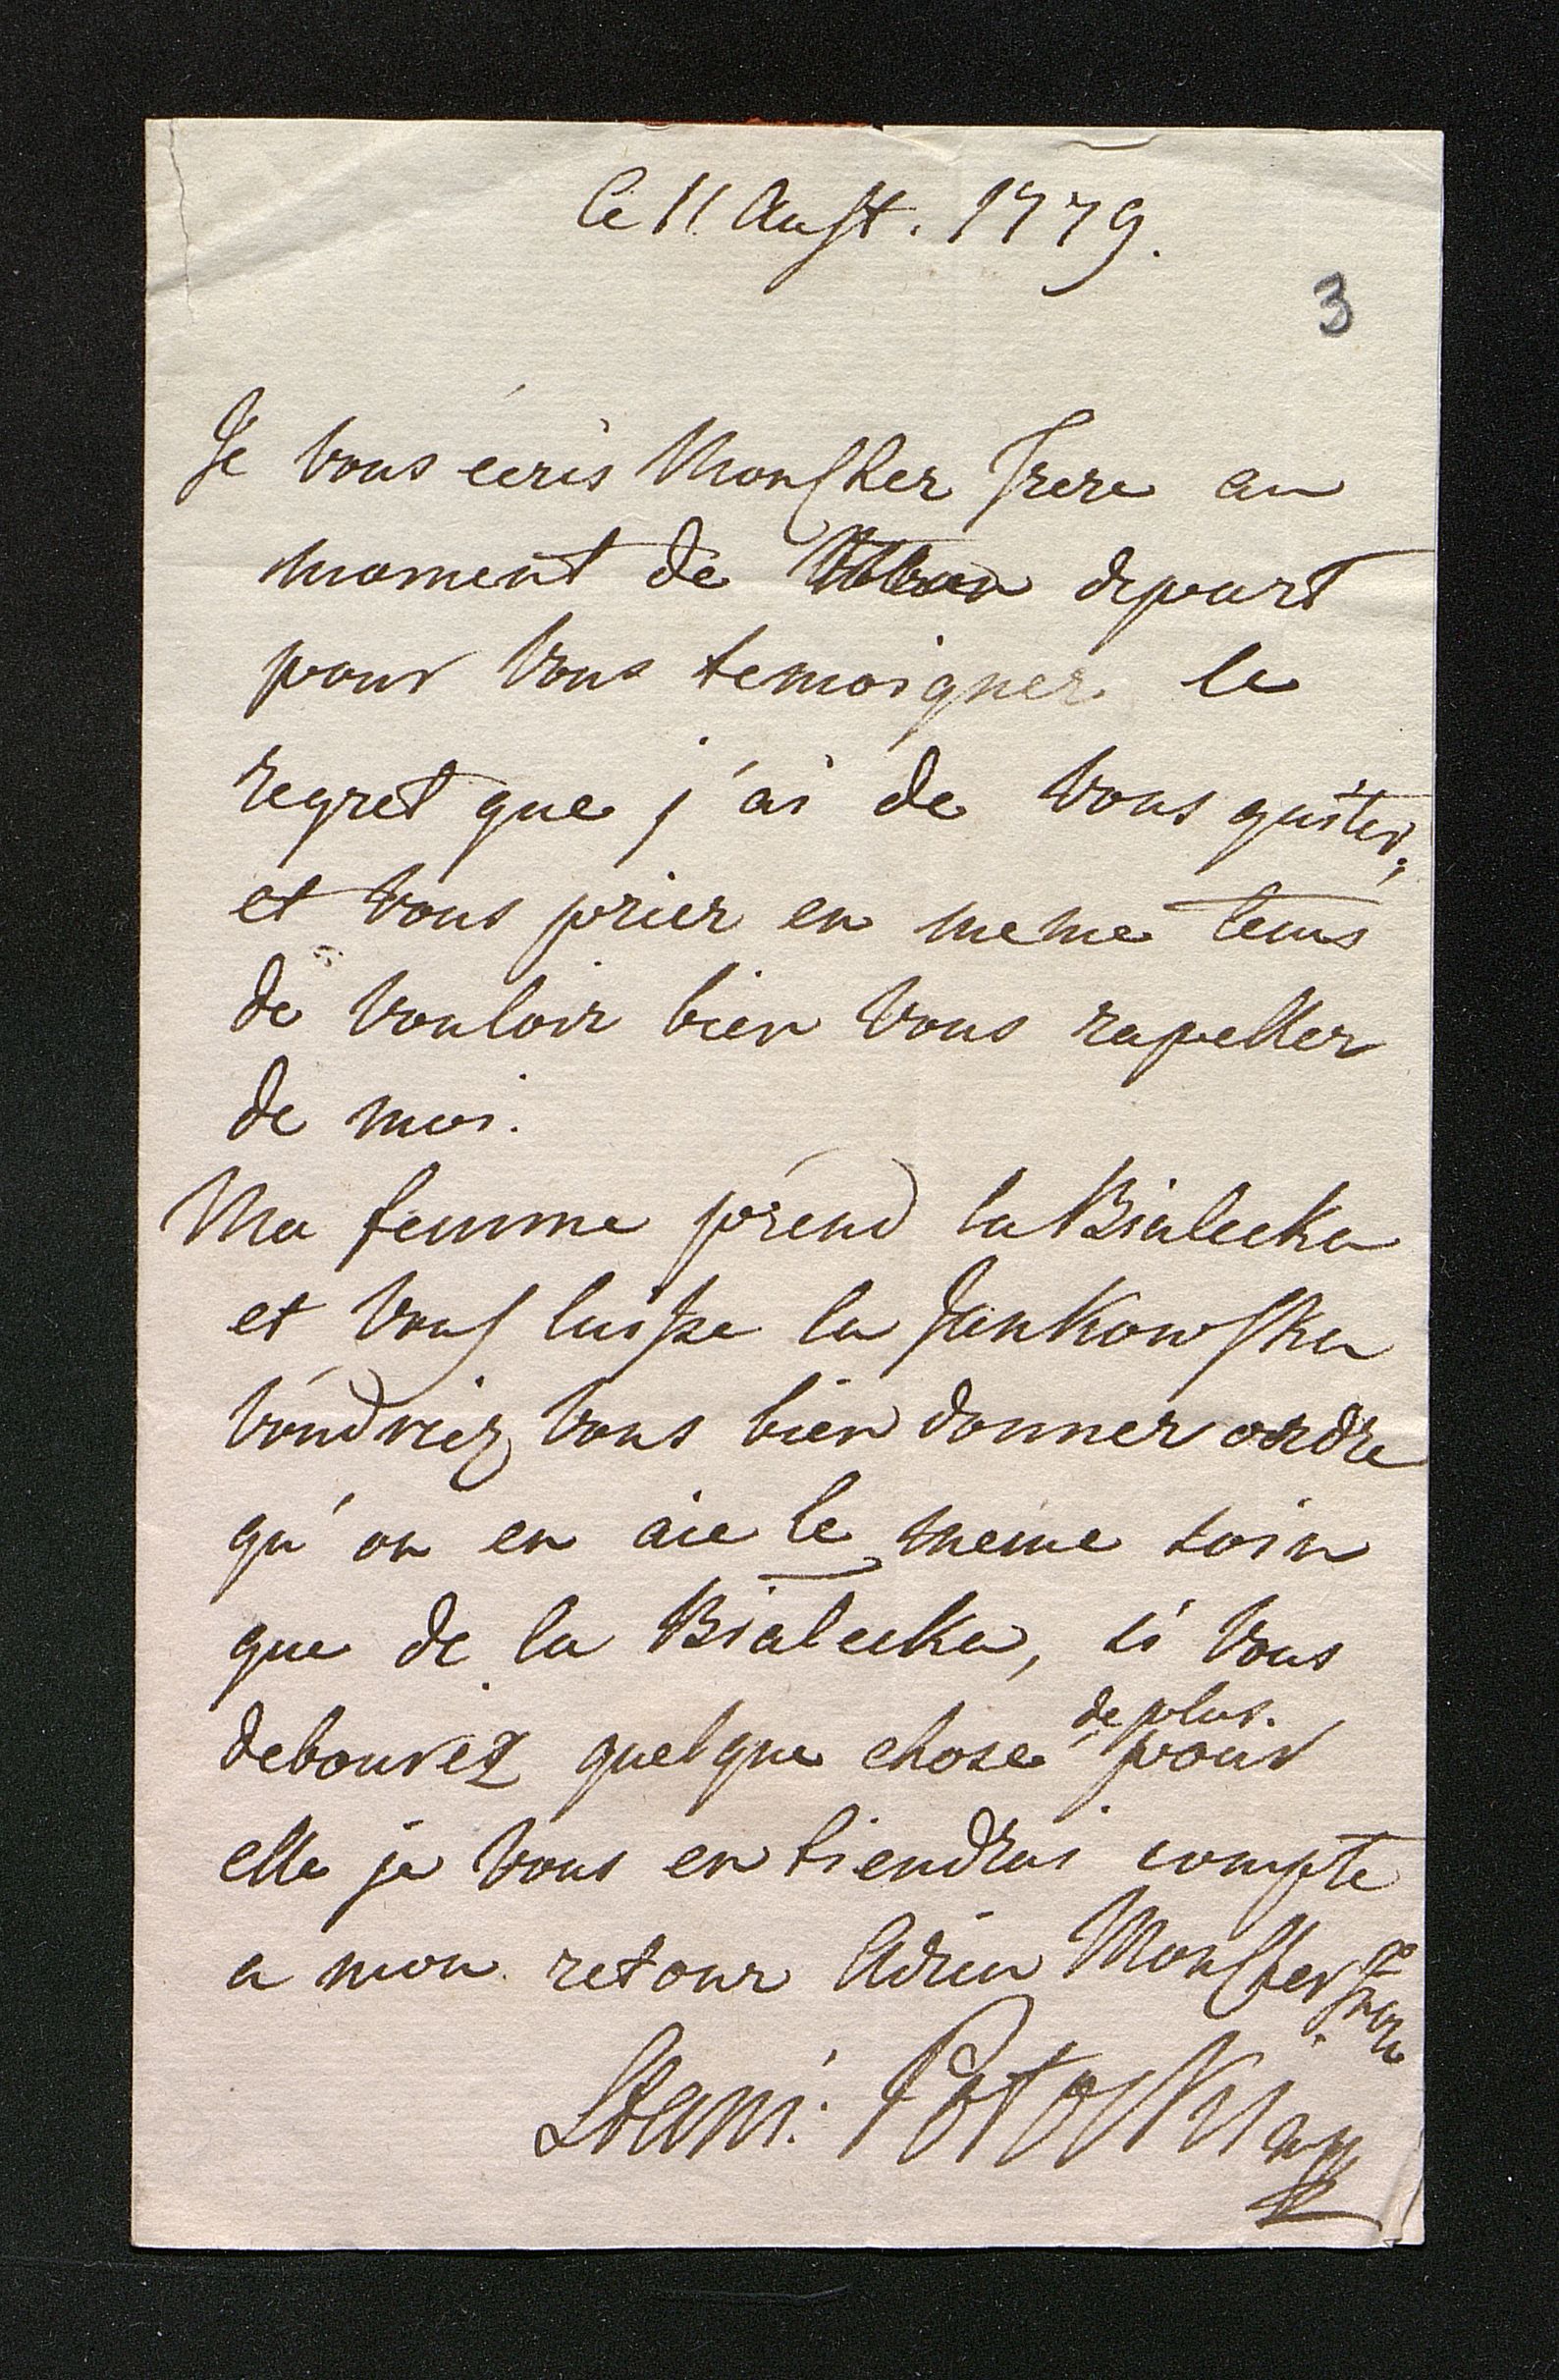 Ce 11 Aust. 1779.
3
Je vous ecris Mon Cher Frere au
moment de mon depart
pour vous temoigner le
regret que j'ai de vous quiter,
et vous prier en meme tems
de vouloir bien vous rapeller
de moi.
Ma femme prend la Bialecka
et vous laisse la Jankowska
voudriez vous bien donner ordre
qu'on en aie le meme soin
que de la Bialecka, si vous
debourez quelque chose de plus pour
elle je vous en tiendrai compte
a mon retour Adieu Mon Cher Frere
Stani: Potocki